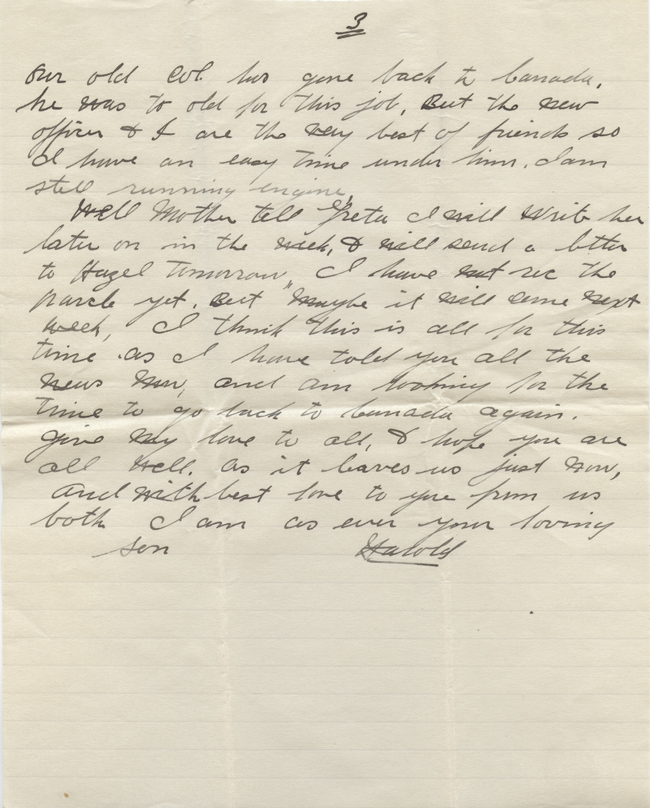 3
Our old Col. has gone back to Canada,
he was to old for this job, But the new
officer & I are the very best of friends so
I have an easy time under him. I am
still running engine,
Well Mother tell Greta I will write her
later on in the week, & will send a letter
to Hazel Tomorrow, I have not rec the
parcle yet. But maybe it will come next
week, I think this is all for this
time. as I have told you all the
news now, and am looking for the
time to go back to Canada again.
give my love to all, & hope you are
all well. as it leaves us just now,
And with best love to you from us
both I am as ever your loving
son Harold